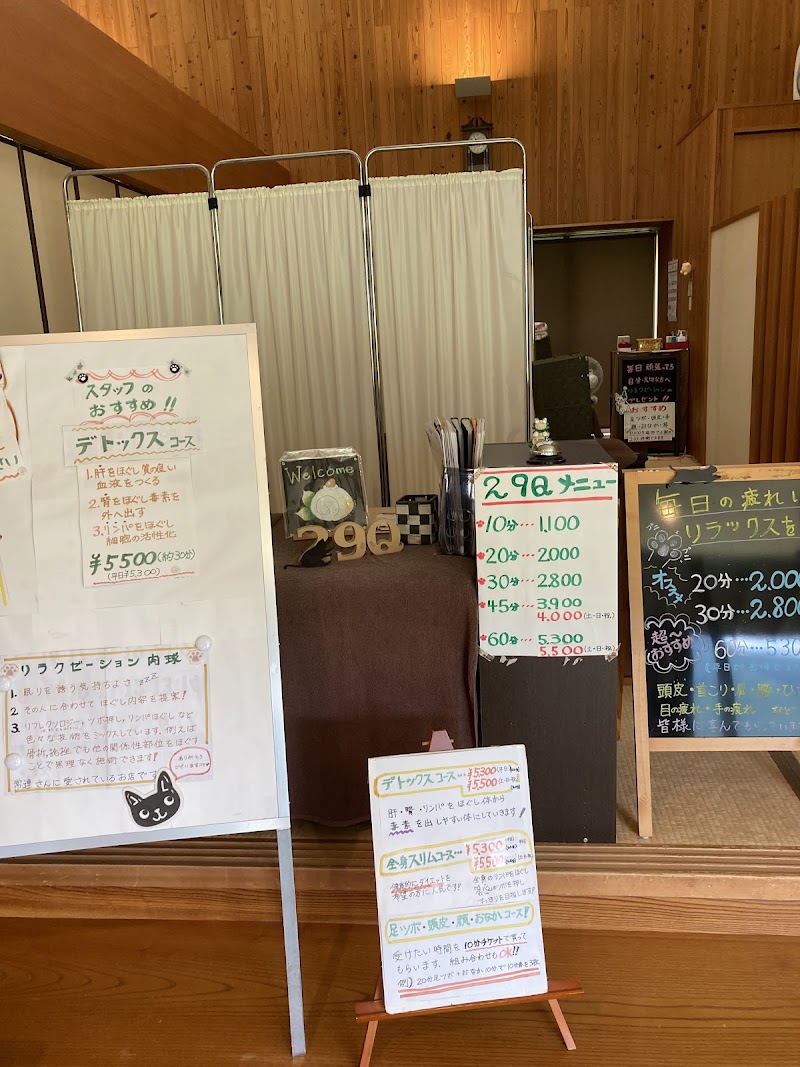 スタッフの
おすすめ!!
デトックスコース
1.肝をほぐし質の良い
血液をつくる
2.腎をほぐし毒素を
外へ出す
3.リンパをほぐし
細胞の活性化
¥5500(約30分)
(平日¥5,300)
リラクゼーション肉球
1. 眠りを誘う気持ちよさzzz
2. その人に合わせてほぐし内容を提案!
3. リフレクソロジー・ツボ押し・リンパほぐしなど
色々な技術をミックスしています。例えば
骨折、捻挫でも他の関係性部位をほぐす
ことで無理なく施術できます!
常連さんに愛されているお店です
ありがとう
ございます
Welcome
29Q
29Qメニュー
10分…1,100
20分…2,000
30分…2,800
45分…3,900
4,000(土・日・祝)
60分…5,300
5,500(土・日・祝)
毎日頑張ってる
プレゼント!!
おすすめ
毎日の疲れい
リラックスを
プニ
プニ
オススメ
20分…2,000
30分…2,80
超〜
おすすめ
60分…530
頭皮・首こり・肩・腰・ひ
目の疲れ・手の疲れ
皆様に喜んでもらって
デトックスコース…¥5300
¥5500
肝・腎・リンパをほぐし体から
毒素を出しやすい体にしていきます!
全身スリムコース…¥5,300
¥5500
健康的にダイエットを
希望の方に人気です!
全身のリンパをほぐし
ツボを押し
すっきりを目指します!
足ツボ・頭皮・顔・おなかコース!
受けたい時間を10分チケットで買って
もらいます。組み合わせもOK!!
例) 20分足ツボ+おなか10分で10分券を3枚